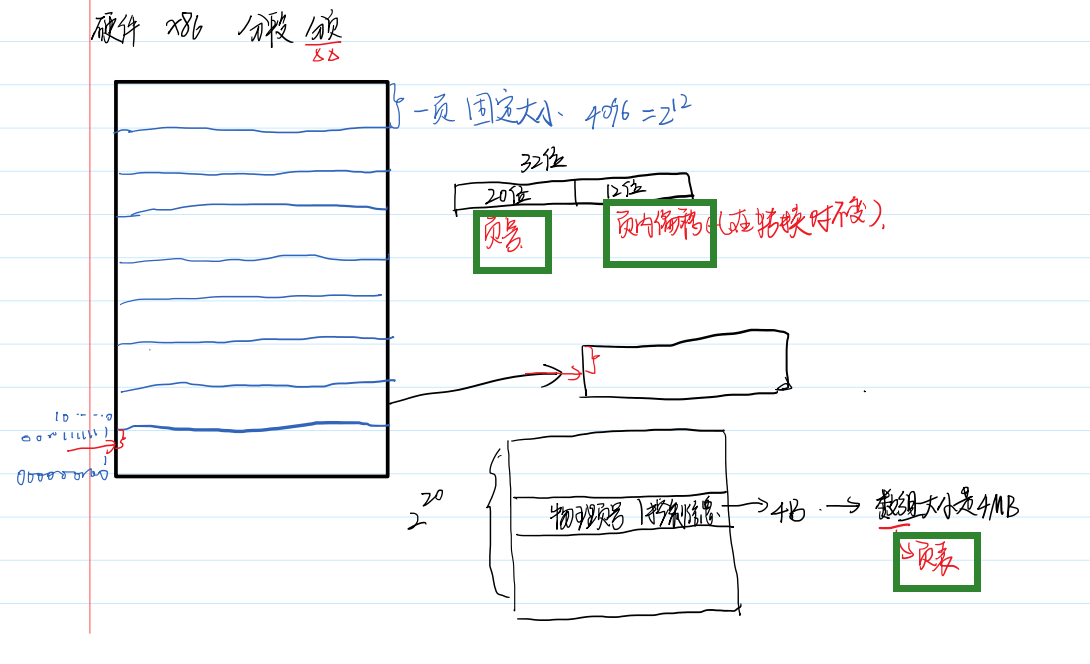 硬件 x86 分段 分页
一页 固定大小 4096 = 2^12
32位
20位 12位
页号 页内偏移(在转换时不变).
10·····0
000000000
2^20
物理页号 控制信息 → 4B → 数组大小是4MB
页表